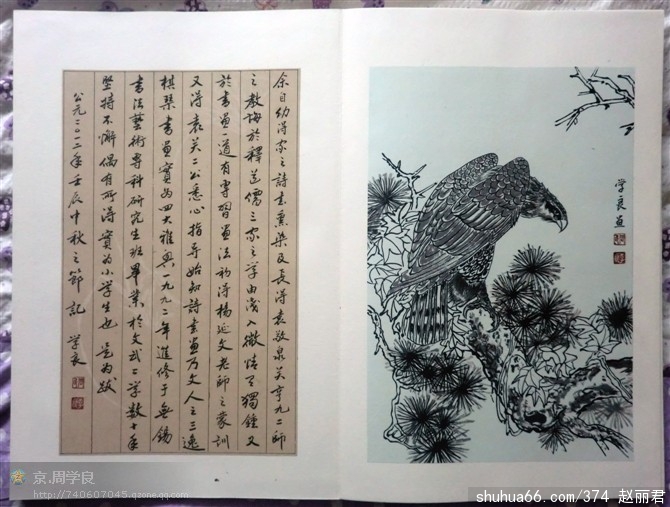 余自幼得家之詩書薰染及長得袁敬泉关亨九二師
之教悔於釋道儒三家之学由淺入微情有獨鍾又
於書畫一道有專習畫法初得楊延文老師之蒙訓
又得袁关二公悉心指导始知詩書畫乃文人之三逸
棋琴書畫實为四大雅興一九九二年進修于無錫
書法藝術專科研究生班畢業於文武二学数十年
坚持不懈偶有所得實为小学生也 是为跋
公元二〇一二年壬辰中秋之節記 学良
学良画
京.周学良
http://740607045.qzone.qq.com
shuhua66.com/374 赵丽君